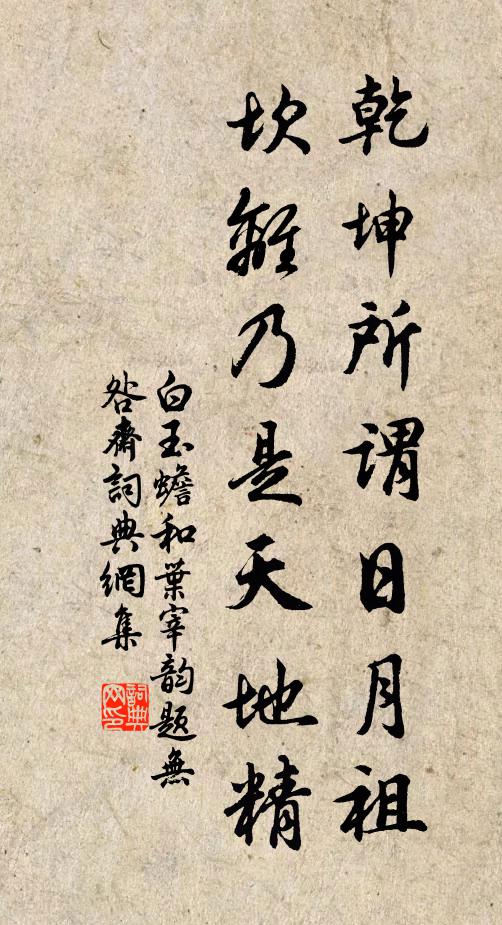 乾坤所謂日月祖
坎離乃是天地精
白玉蟾和葉宰韵題無
咎齋詞典網集
詞典网印